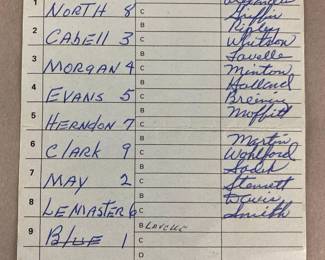 1 NORTH 8 C Griffin
B Ripley
2 CABELL 3 C Whitson
B Lavelle
3 MORGAN 4 C Minton
B Holland
4 EVANS 5 C Breining
B Moffitt
5 HERNDON 7 C
B Martin
6 CLARK 9 C Wohlford
B Sadek
7 MAY 2 C Stennett
B Davis
8 LEMASTER 6 C Smith
9 B
BLUE 1 C
D